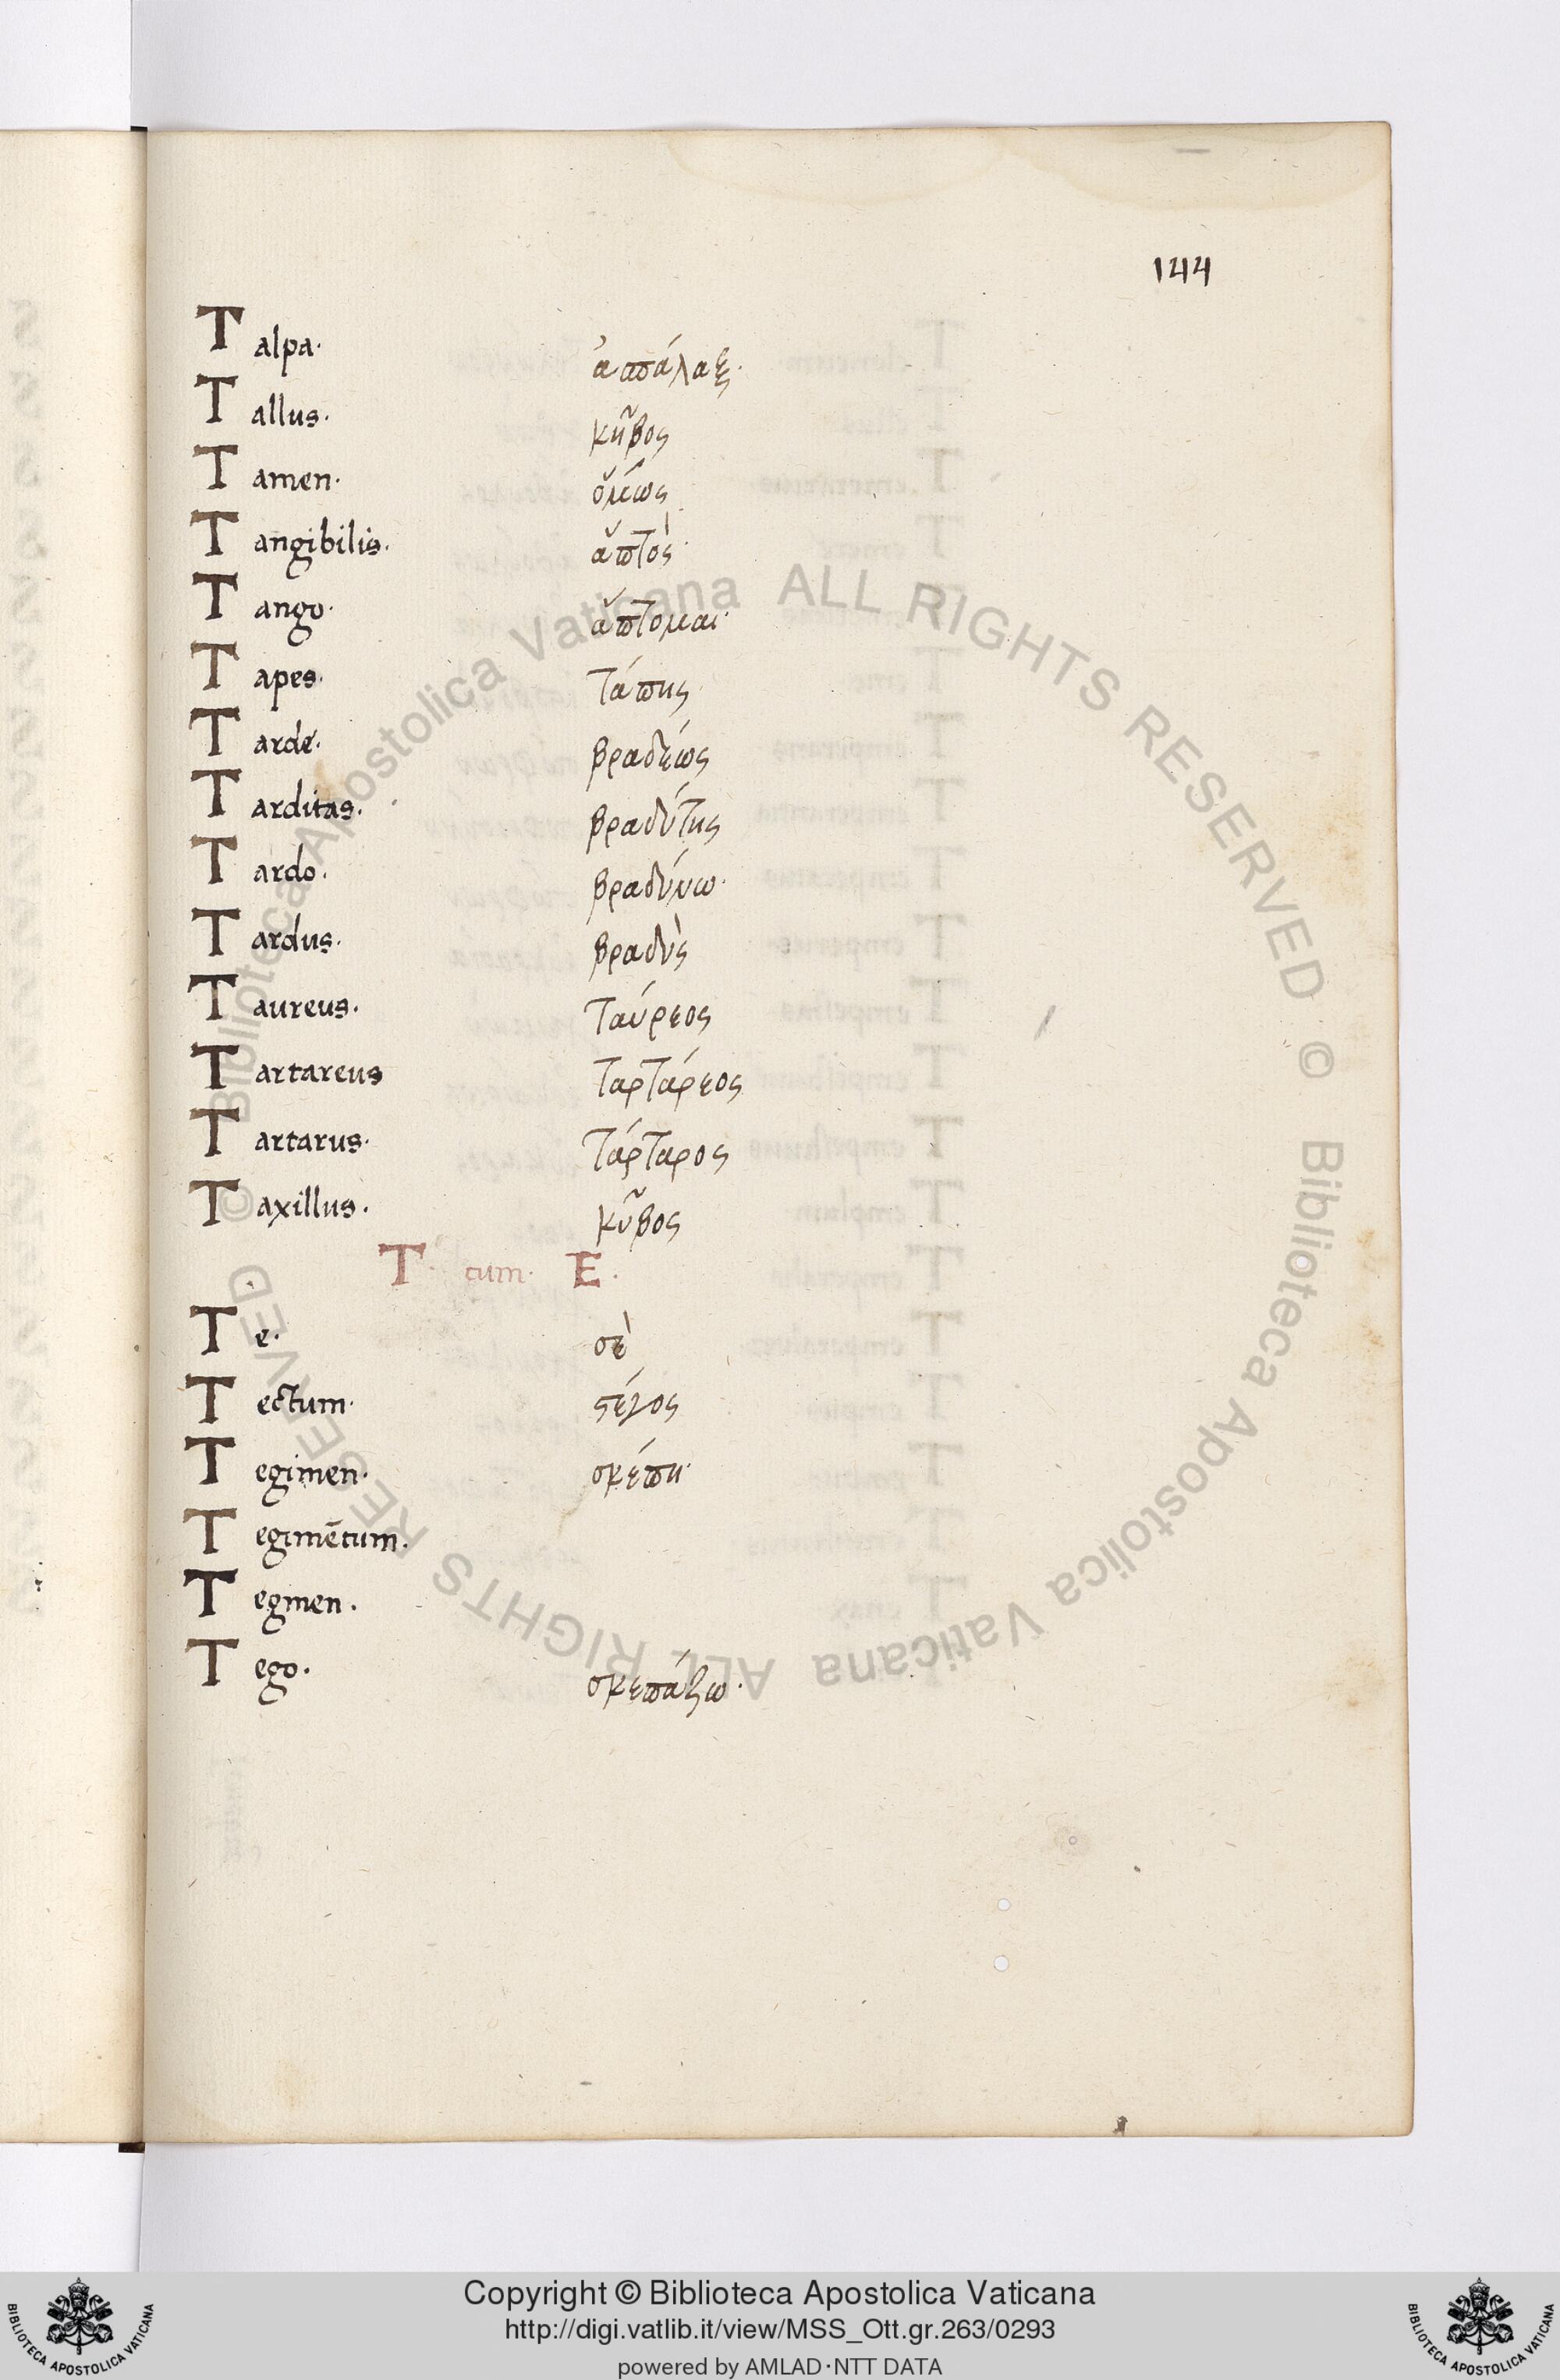 144
Talpa. ἀσπάλαξ.
Tallus. κῦβος
Tamen. ὅμως
Tangibilis. ἁπτὸς.
Tango. ἅπτομαι.
Tapes. τάπης.
Tarde. βραδέως
Tarditas. βραδύτης
Tardo. βραδύνω.
Tardus. βραδὺς
Taureus. ταύρεος
Tartareus ταρτάρεος
Tartarus. τάρταρος
Taxillus. κῦβος
T. cum. E.
Te. σὲ
Tectum. στέγος
Tegimen. σκέπη.
Tegimētum.
Tegmen.
Tego. σκεπάζω.
© Biblioteca Apostolica Vaticana ALL RIGHTS RESERVED © Biblioteca Apostolica Vaticana ALL RIGHTS RESERVED
Copyright © Biblioteca Apostolica Vaticana
http://digi.vatlib.it/view/MSS_Ott.gr.263/0293
powered by AMLAD·NTT DATA
BIBLIOTECA APOSTOLICA VATICANA
BIBLIOTECA APOSTOLICA VATICANA